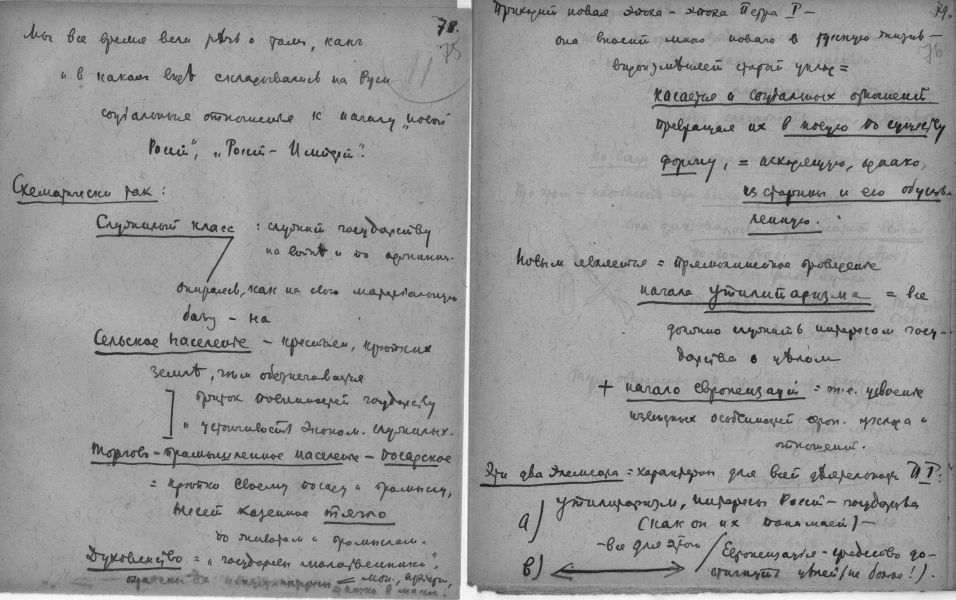 78.
75
Мы все время вели рѣчь о том, какъ
и в каком видѣ складывались на Руси
социальные отношения к началу „новой
России", „России-Империи".
Схематически так:
Служилый класс : служит государству
на войнѣ и по админи-
опираясь, как на свою материальную
базу – на
Сельское население – крестьян, крѣпких
землѣ, чем обезпечивается
приток повинностей государству
и устойчивость эконом. служилых.
Торгово-промышленное население – посадское
= крѣпко своему посаду и промыслу,
несет казенное тягло
по животам и промыслам.
Духовенство = „государевы молитвенники",
79.
76
Приходит новая эпоха – эпоха Петра I –
она вносит много новаго в русскую жизнь –
видоизмѣняет старый уклад =
касается и социальных отношений
превращая их в новую по существу
форму, = исходящую, однако,
из старины и ею обуслов-
ленную.
Новым является = прямолинейное проведение
начала утилитаризма = все
должно служить интересам госу-
дарства в цѣлом
+ начало европеизации = т.е. усвоение
внешних особенностей европ. уклада и
отношений.
Эти два элемента = характерны для всей дѣятельности П I:
а) утилитаризм, интересы России – государства
(как он их понимает) –
– все для этого
в) Европеизация – средство до-
стигнуть цѣлей (не более!).